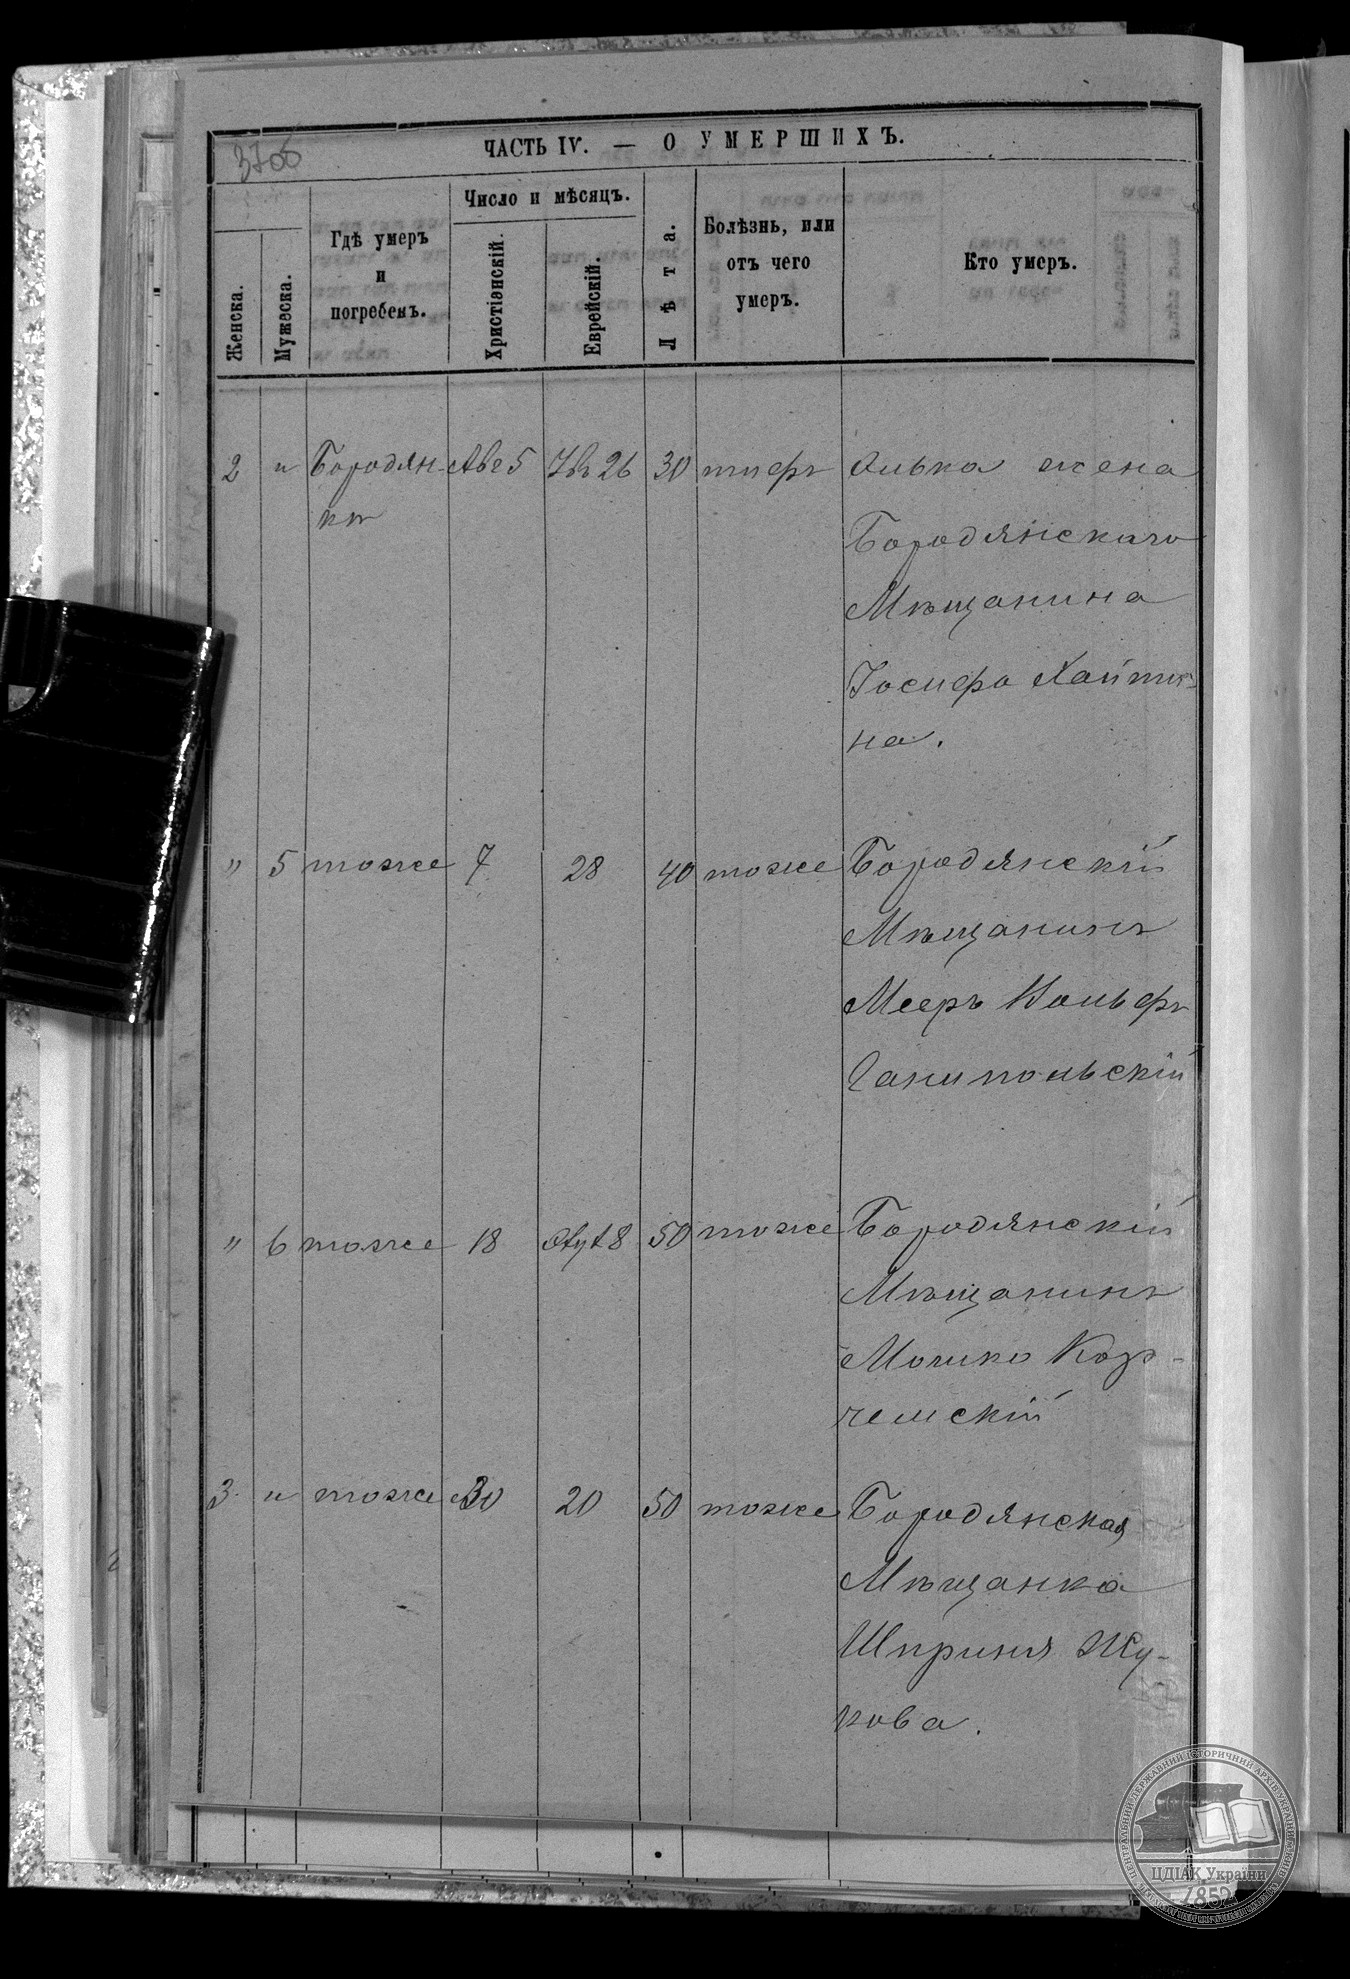 370б
ЧАСТЬ IV. — О УМЕРШИХЪ.
Женска.
Мужеска.
Гдѣ умеръ
и
погребенъ.
Число и мѣсяцъ.
Христіэнскій.
Еврейскій.
Лѣта.
Болѣзнь, или
отъ чего
умеръ.
Кто умеръ.
2 " Бородян- Авг 5 26 30 тифъ Олька жена
ка
Бородянскаго
Мѣщанина
Іосифа Хайти-
на.
" 5 тоже 7 28 40 тоже Бородянскій
Мѣщанинъ
Мееръ Вольфъ
Ганипольскій
" 6 тоже 18 8 50 тоже Бородянскій
Мѣщанинъ
Мошко Кор-
чемскій
3 " тоже 30 20 50 тоже Бородянская
Мѣщанка
Шприня Жу-
кова.
ЦЕНТРАЛЬНИЙ ДЕРЖАВНИЙ ІСТОРИЧНИЙ АРХІВ УКРАЇНИ
ЦДІАК України
1852